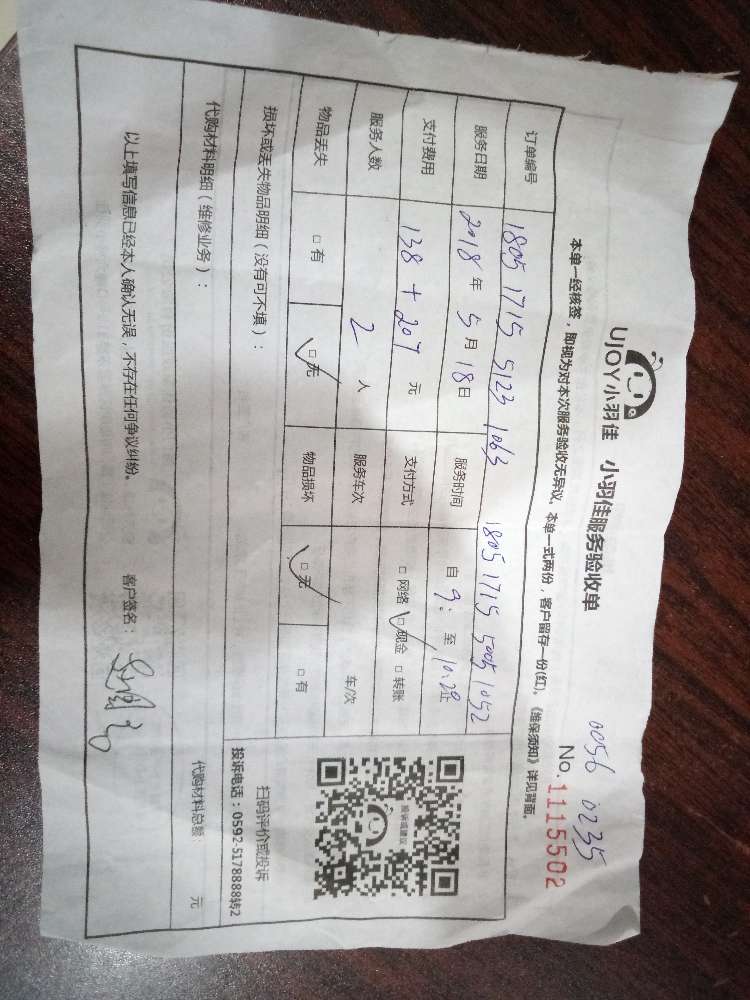 UJOY小羽佳 小羽佳服务验收单
0056 0235
No.1115502
本单一经核签，即视为对本次服务验收无异议。本单一式两份，客户留存一份(红)。《维保须知》详见背面。
订单编号 1805 1715 5123 1063 1805 1715 5005 1052
服务日期 2018年5月18日 服务时间 自9: 至10:29止
支付费用 138+207元 支付方式 □网络 □现金 □转账
服务人数 2人 服务车次 车/次
物品丢失 □有 □无 物品损坏 □无 □有
损坏或丢失物品明细（没有可不填）：
代购材料明细（维修业务）：
代购材料总额: 元
以上填写信息已经本人确认无误，不存在任何争议纠纷。 客户签名：
投诉或建议
扫码评价或投诉
投诉电话：0592-5178888转2